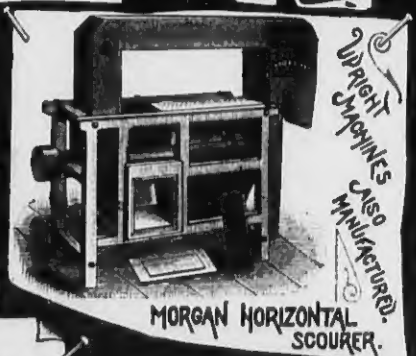 UPRIGHT
MACHINES
ALSO
MANUFACTURED.
MORGAN HORIZONTAL
SCOURER.